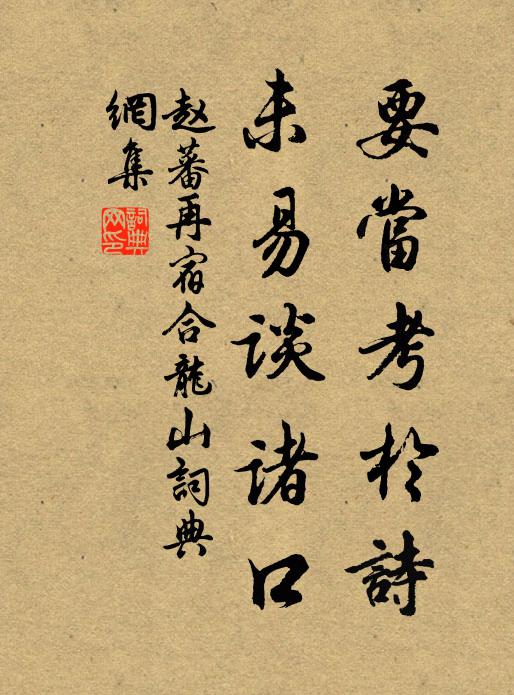 要當考於詩
未易談諸口
赵蕃再宿合龍山詞典
網集
詞典網印